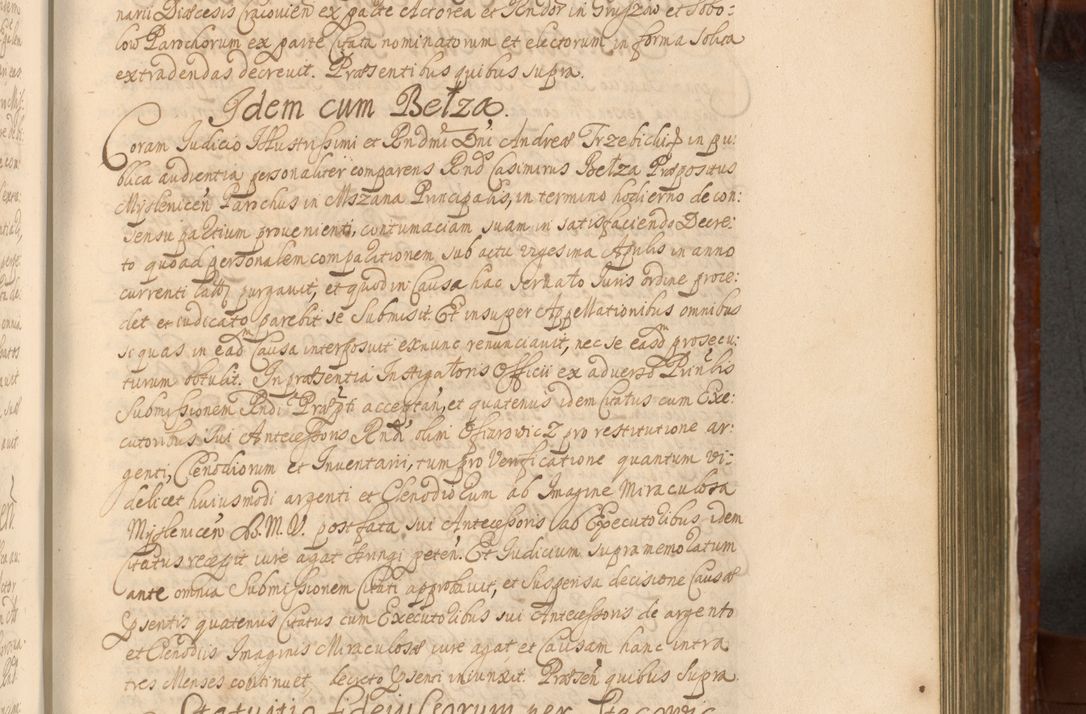 narii Diœcesis Cracovien ex parte Actorea et Rndor in Gruszow et Sobo:
low Parochorum ex parte Citata nominatorum et electorum in forma solita
extradendas decrevit. Præsentibus quibus supra.
Idem cum Bełza.
Coram Iudicio Illustrissimi et Rndmi Dni Andreæ Trzebicki in pu:
blica audientia personaliter comparens Rnds Casimirus Bełza Præpositus
Myslenicen Parochus in Mszana Principalis, in termino hodierno de con:
sensu partium provenienti, contumaciam suam in satisfaciendo Decre:
to quoad personalem comparitionem sub actu vigesima Aprilis in anno
currenti purgavit, et quod in Causa hac servato Iuris ordine proce:
det et iudicato parebit se submisit. Et insuper Appellationibus omnibus
si quas in eadm Causa interposuit exnunc renunciavit, nec se easdm prosecu:
turum obtulit. In præsentia Instigatoris Officii ex adverso Prinlis
submissionem Rndi Præpti acceptan, et quatenus idem Citatus cum Exe:
cutoribus sui Antecessoris Rndi olim Ofiarowicz pro restitutione ar:
genti, Clenodiorum et Inventarii, tum pro verificatione quantum vi:
delicet huiusmodi argenti et Clenodiorum ab Imagine Miraculosa
Myslenicen B. M. V. post fata sui Antecessoris ab Executoribus idem
Citatus recepit iure agat iniungi peten. Et Iudicium supra memoratum
ante omnia submissionem Citati approbavit, et suspensa decisione Causæ
præsentis quatenus Citatus cum Executoribus sui Antecessoris de argento
et Clenodiis Imaginis Miraculosæ iure agat, et Causam hanc intra
tres Menses continuet, decreto præsenti iniunxit. Præsen quibus supra.